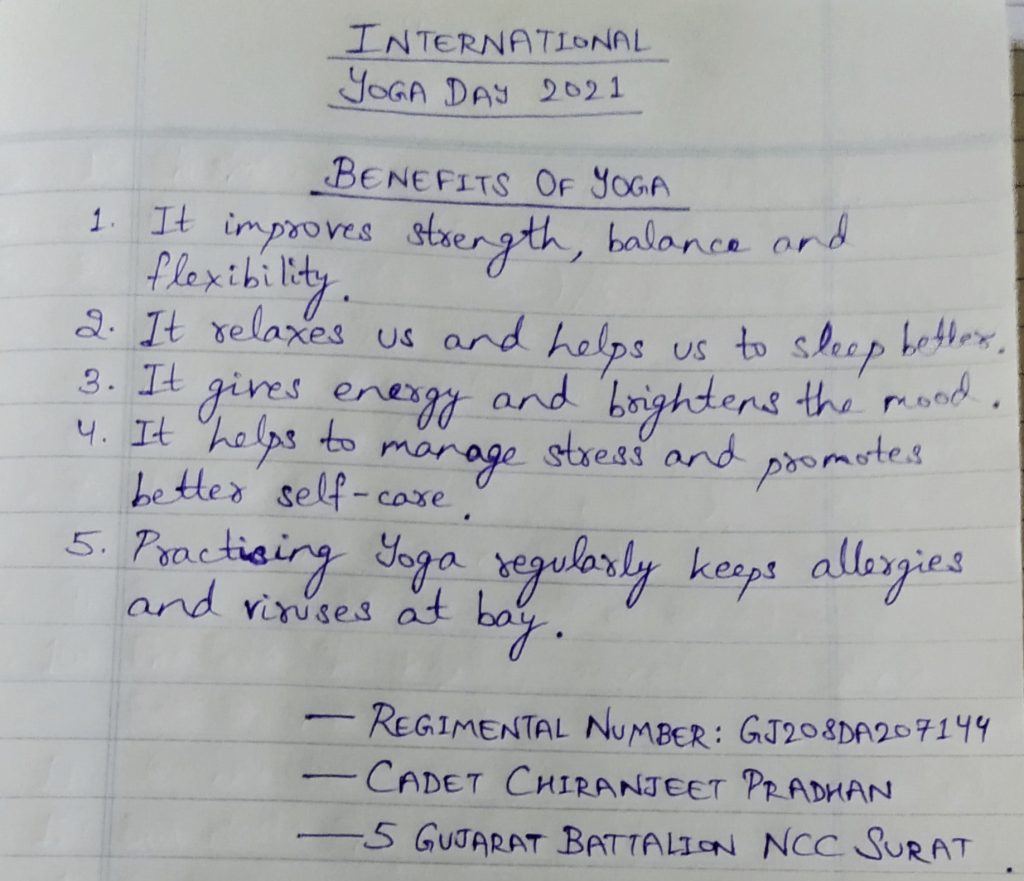 INTERNATIONAL
YOGA DAY 2021
BENEFITS OF YOGA
1. It improves strength, balance and
flexibility.
2. It relaxes us and helps us to sleep better.
3. It gives energy and brightens the mood.
4. It helps to manage stress and promotes
better self-care.
5. Practicing Yoga regularly keeps allergies
and viruses at bay.
— REGIMENTAL NUMBER: GJ20SDA207144
— CADET CHIRANJEET PRADHAN
— 5 GUJARAT BATTALION NCC SURAT.